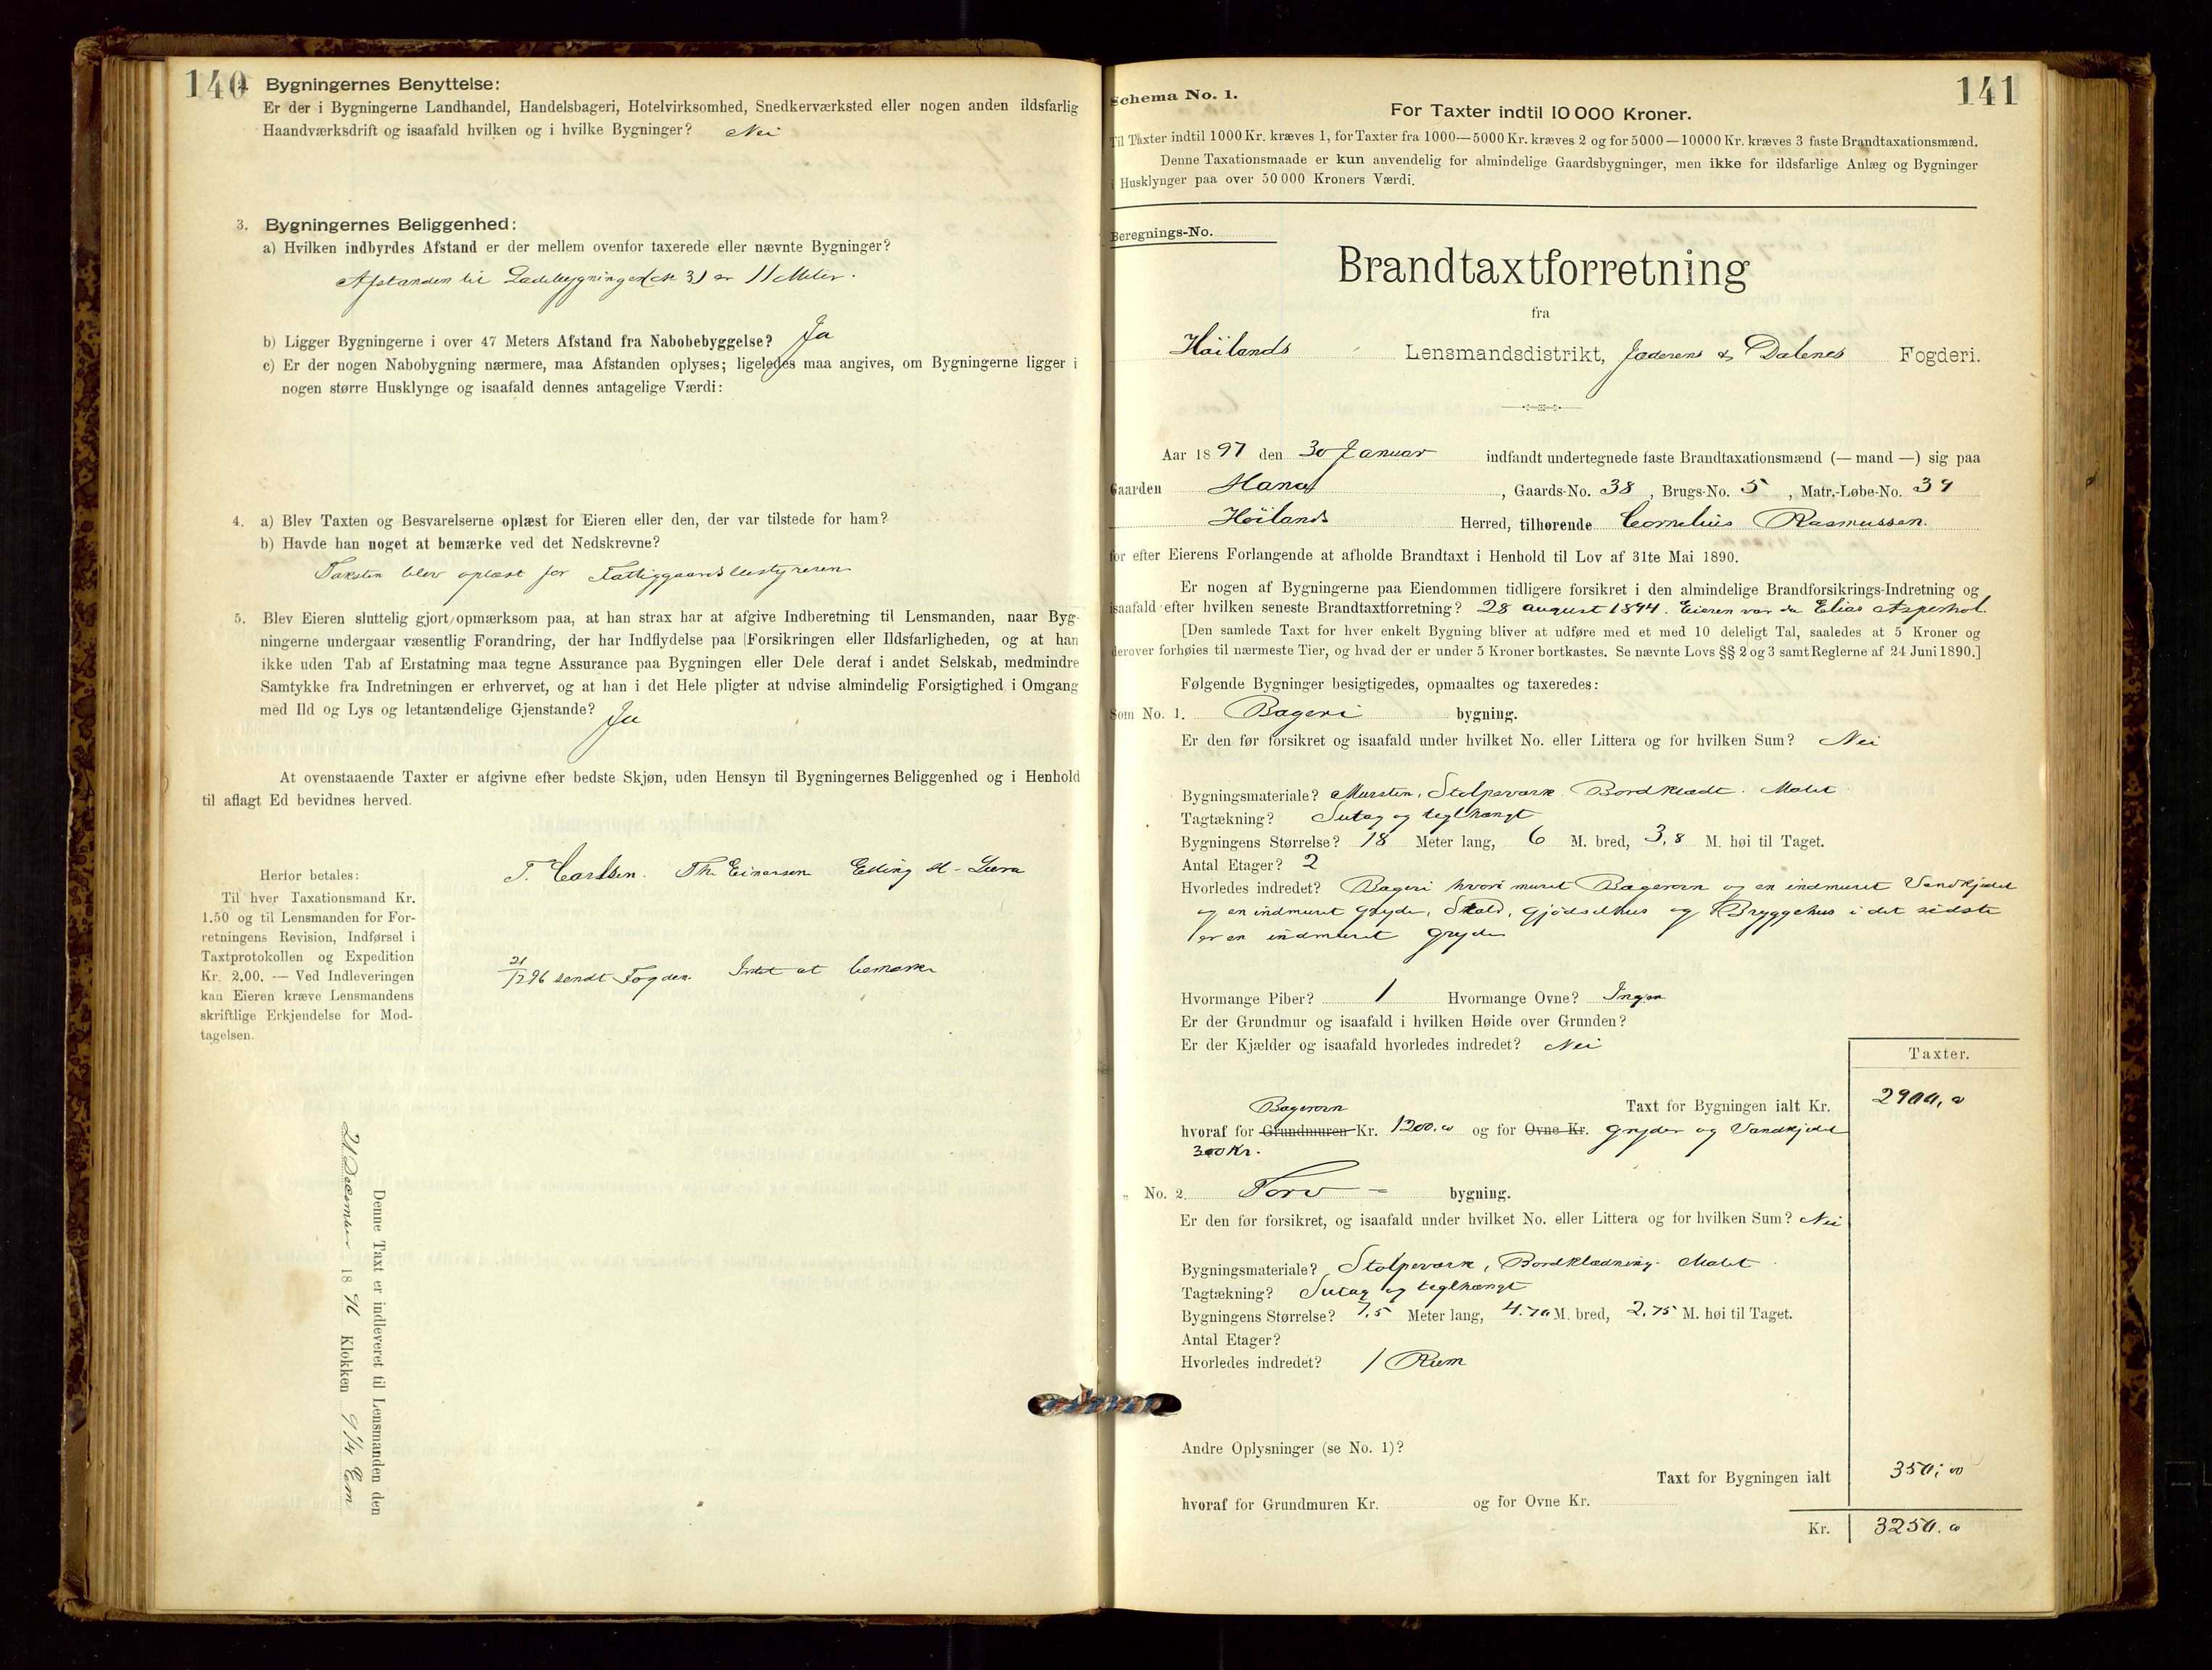 140
2. Bygningernes Benyttelse:
Er der i Bygningerne Landhandel, Handelsbageri, Hotelvirksomhed, Snedkerværksted eller nogen anden ildsfarlig
Haandværksdrift og isaafald hvilken og i hvilke Bygninger? Nei
3. Bygningernes Beliggenhed:
a) Hvilken indbyrdes Afstand er der mellem ovenfor taxerede eller nævnte Bygninger?
Afstanden til Ladebygningen (N 3) er 11 Meter.
b) Ligger Bygningerne i over 47 Meters Afstand fra Nabobebyggelse? Ja
c) Er der nogen Nabobygning nærmere, maa Afstanden oplyses; ligeledes maa angives, om Bygningerne ligger i
nogen større Husklynge og isaafald dennes antagelige Værdi:
4. a) Blev Taxten og Besvarelserne oplæst for Eieren eller den, der var tilstede for ham?
b) Havde han noget at bemærke ved det Nedskrevne?
Taksten blev oplæst for Fattiggaardsbestyreren
5. Blev Eieren sluttelig gjort opmærksom paa, at han strax har at afgive Indberetning til Lensmanden, naar Byg-
ningerne undergaar væsentlig Forandring, der har Indflydelse paa Forsikringen eller Ildsfarligheden, og at han
ikke uden Tab af Erstatning maa tegne Assurance paa Bygningen eller Dele deraf i andet Selskab, medmindre
Samtykke fra Indretningen er erhvervet, og at han i det Hele pligter at udvise almindelig Forsigtighed i Omgang
med Ild og Lys og letantændelige Gjenstande? Ja
At ovenstaaende Taxter er afgivne efter bedste Skjøn, uden Hensyn til Bygningernes Beliggenhed og i Henhold
til aflagt Ed bevidnes herved.
T. Carlsen. Th. Einarsen Elling M.
Herfor betales:
Til hver Taxationsmand Kr.
1.50 og til Lensmanden for For-
retningens Revision, Indførsel i
Taxtprotokollen og Expedition
Kr. 2.00. — Ved Indleveringen
kan Eieren kræve Lensmandens
skriftlige Erkjendelse for Mod-
tagelsen.
21/12 96 sendt Fogden. Intet at bemærke
Denne Taxt er indleveret til Lensmanden den
21 December 1896 Klokken 9 1/4 Em
141
Schema No. 1.
For Taxter indtil 10 000 Kroner.
Til Taxter indtil 1000 Kr. kræves 1, for Taxter fra 1000—5000 Kr. kræves 2 og for 5000—10000 Kr. kræves 3 faste Brandtaxationsmænd.
Denne Taxationsmaade er kun anvendelig for almindelige Gaardsbygninger, men ikke for ildsfarlige Anlæg og Bygninger
i Husklynger paa over 50 000 Kroners Værdi.
Beregnings-No.
Brandtaxtforretning
fra
Höilands Lensmandsdistrikt, Jæderens & Dalenes Fogderi.
Aar 1897 den 30 Januar indfandt undertegnede faste Brandtaxationsmænd (— mand —) sig paa
Gaarden Hana, Gaards-No. 38, Brugs-No. 5, Matr.-Løbe-No. 39
Höilands Herred, tilhørende Cornelius Rasmussen.
for efter Eierens Forlangende at afholde Brandtaxt i Henhold til Lov af 31te Mai 1890.
Er nogen af Bygningerne paa Eiendommen tidligere forsikret i den almindelige Brandforsikrings-Indretning og
isaafald efter hvilken seneste Brandtaxtforretning? 28 august 1894. Eieren var da Elias
[Den samlede Taxt for hver enkelt Bygning bliver at udføre med et med 10 deleligt Tal, saaledes at 5 Kroner og
derover forhøies til nærmeste Tier, og hvad der er under 5 Kroner bortkastes. Se nævnte Lovs §§ 2 og 3 samt Reglerne af 24 Juni 1890.]
Følgende Bygninger besigtigedes, opmaaltes og taxeredes:
Som No. 1. Bageri bygning.
Er den før forsikret og isaafald under hvilket No. eller Littera og for hvilken Sum? Nei
Bygningsmateriale? Mursten, Stolpeværk. Bordklædt. Malet
Tagtækning? Sutag og teglhængt
Bygningens Størrelse? 18 Meter lang, 6 M. bred, 3,8 M. høi til Taget.
Antal Etager? 2
Hvorledes indredet? Bageri hvori muret Bagerovn og en indmuret Vandkjedel
og en indmuret gryde, Stald, gjødselhus og Bryggehus i det sidste
er en indmuret gryde
Hvormange Piber? 1 Hvormange Ovne? Ingen
Er der Grundmur og isaafald i hvilken Høide over Grunden?
Er der Kjælder og isaafald hvorledes indredet? Nei
Taxter.
Taxt for Bygningen ialt Kr. 2900,00
Bagerovn
hvoraf for Grundmuren Kr. 1200.00 og for Ovne Kr. gryder og Vandkjedel
300 Kr.
„ No. 2. Torv - bygning.
Er den før forsikret, og isaafald under hvilket No. eller Littera og for hvilken Sum? Nei
Bygningsmateriale? Stolpeværk, Bordklædning. Malet
Tagtækning? Sutag og teglhængt
Bygningens Størrelse? 7,5 Meter lang, 4.70 M. bred, 2,75 M. høi til Taget.
Antal Etager?
Hvorledes indredet? 1 Rum
Andre Oplysninger (se No. 1)?
Taxt for Bygningen ialt 350,00
hvoraf for Grundmuren Kr. og for Ovne Kr.
Kr. 3250.00